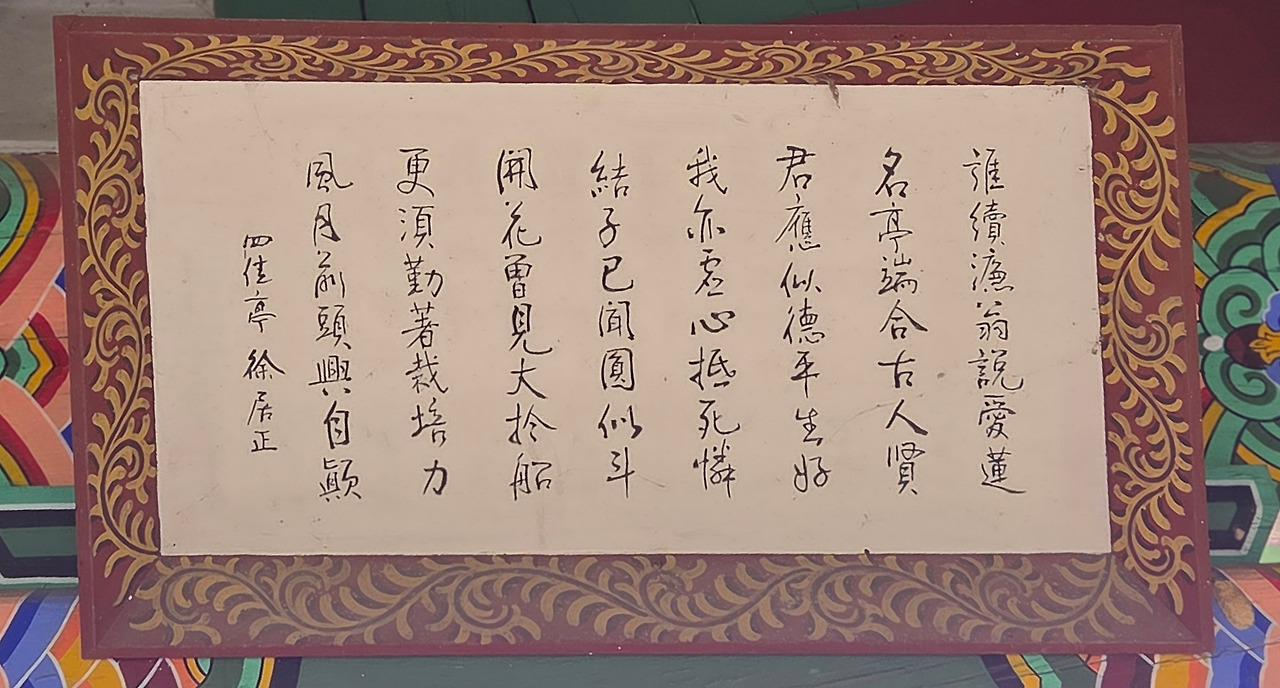 誰續濂翁說愛蓮
名亭端合古人賢
君應似德平生好
我亦虛心抵死憐
結子已聞圓似斗
開花曾見大於船
更須勤著栽培力
風月前頭興自顚
四佳亭 徐居正